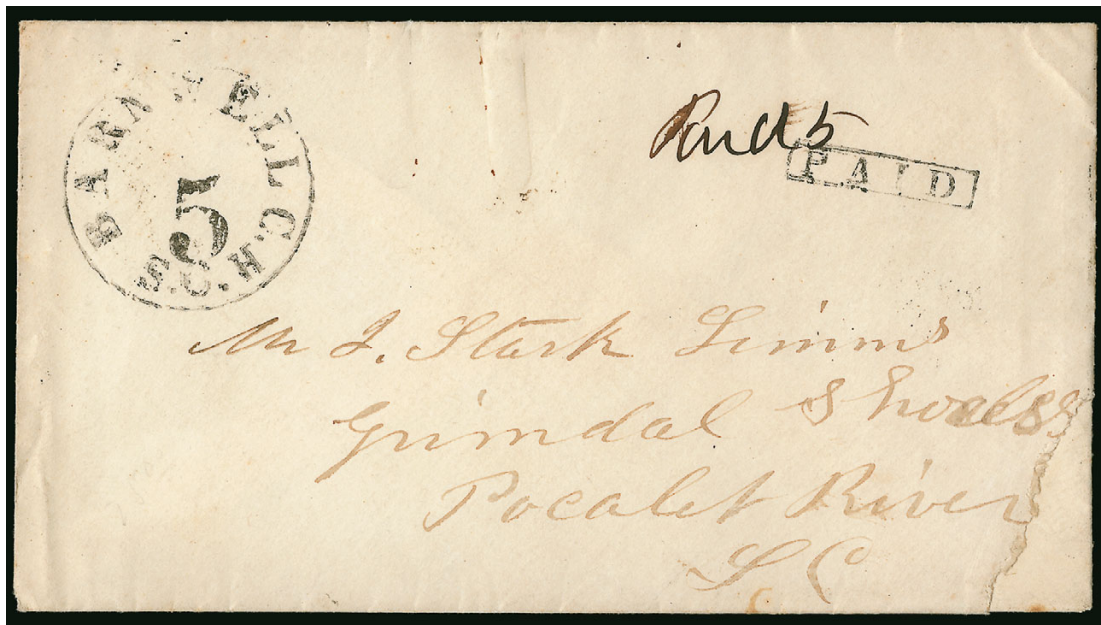 BARNWELL C.H.
S.C.
5
Paid 5
PAID
Mr J. Stark Simms
Grimdal Shoals
Pocalet River
S C